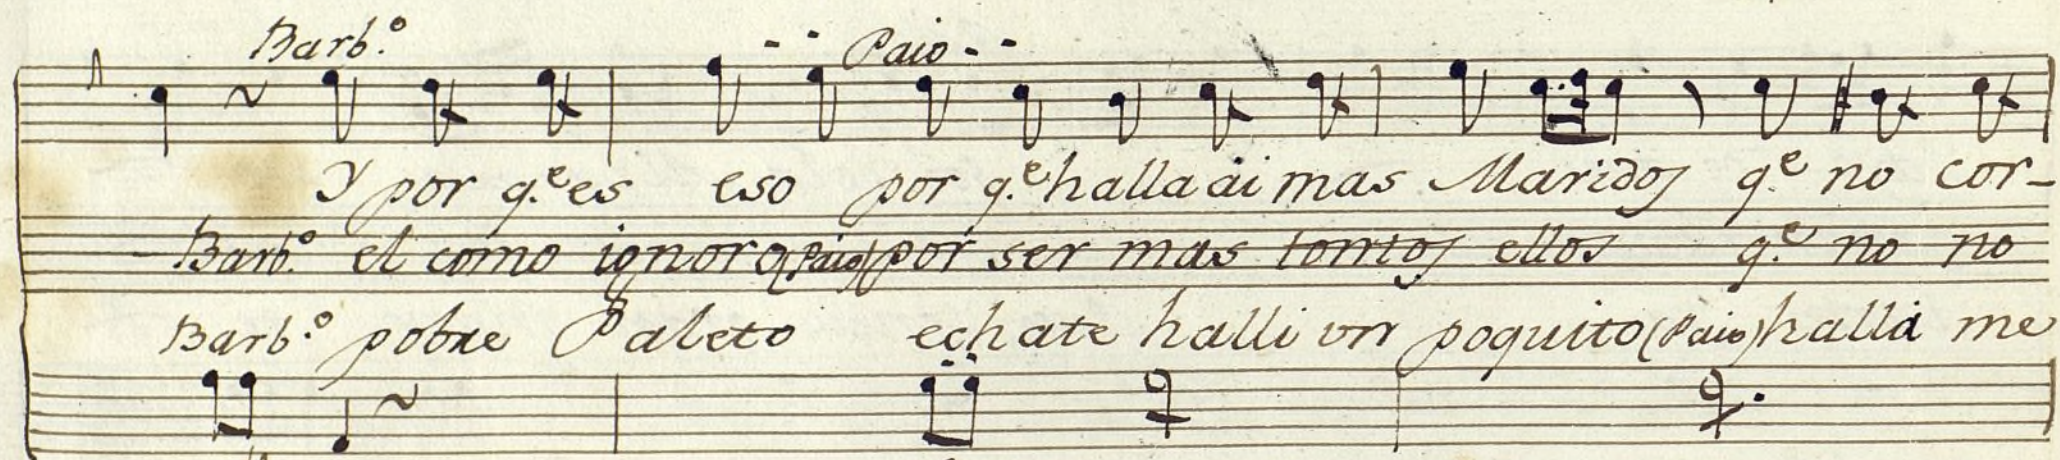 Barb.º Paio
Y por q.e es eso por q.e halla ai mas Maridos q.e no cor-
Barb.º el como ignora (Paio) por ser mas tontos ellos q.e no no
Barb.º pobre Paleto echate halli un poquito (Paio) halla me